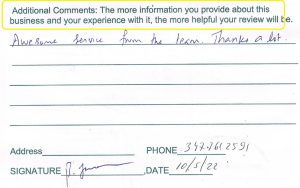 Additional Comments: The more information you provide about this
business and your experience with it, the more helpful your review will be.
Awesome service from the team. Thanks a lot.
Address PHONE 3477612591
SIGNATURE DATE 10/5/22